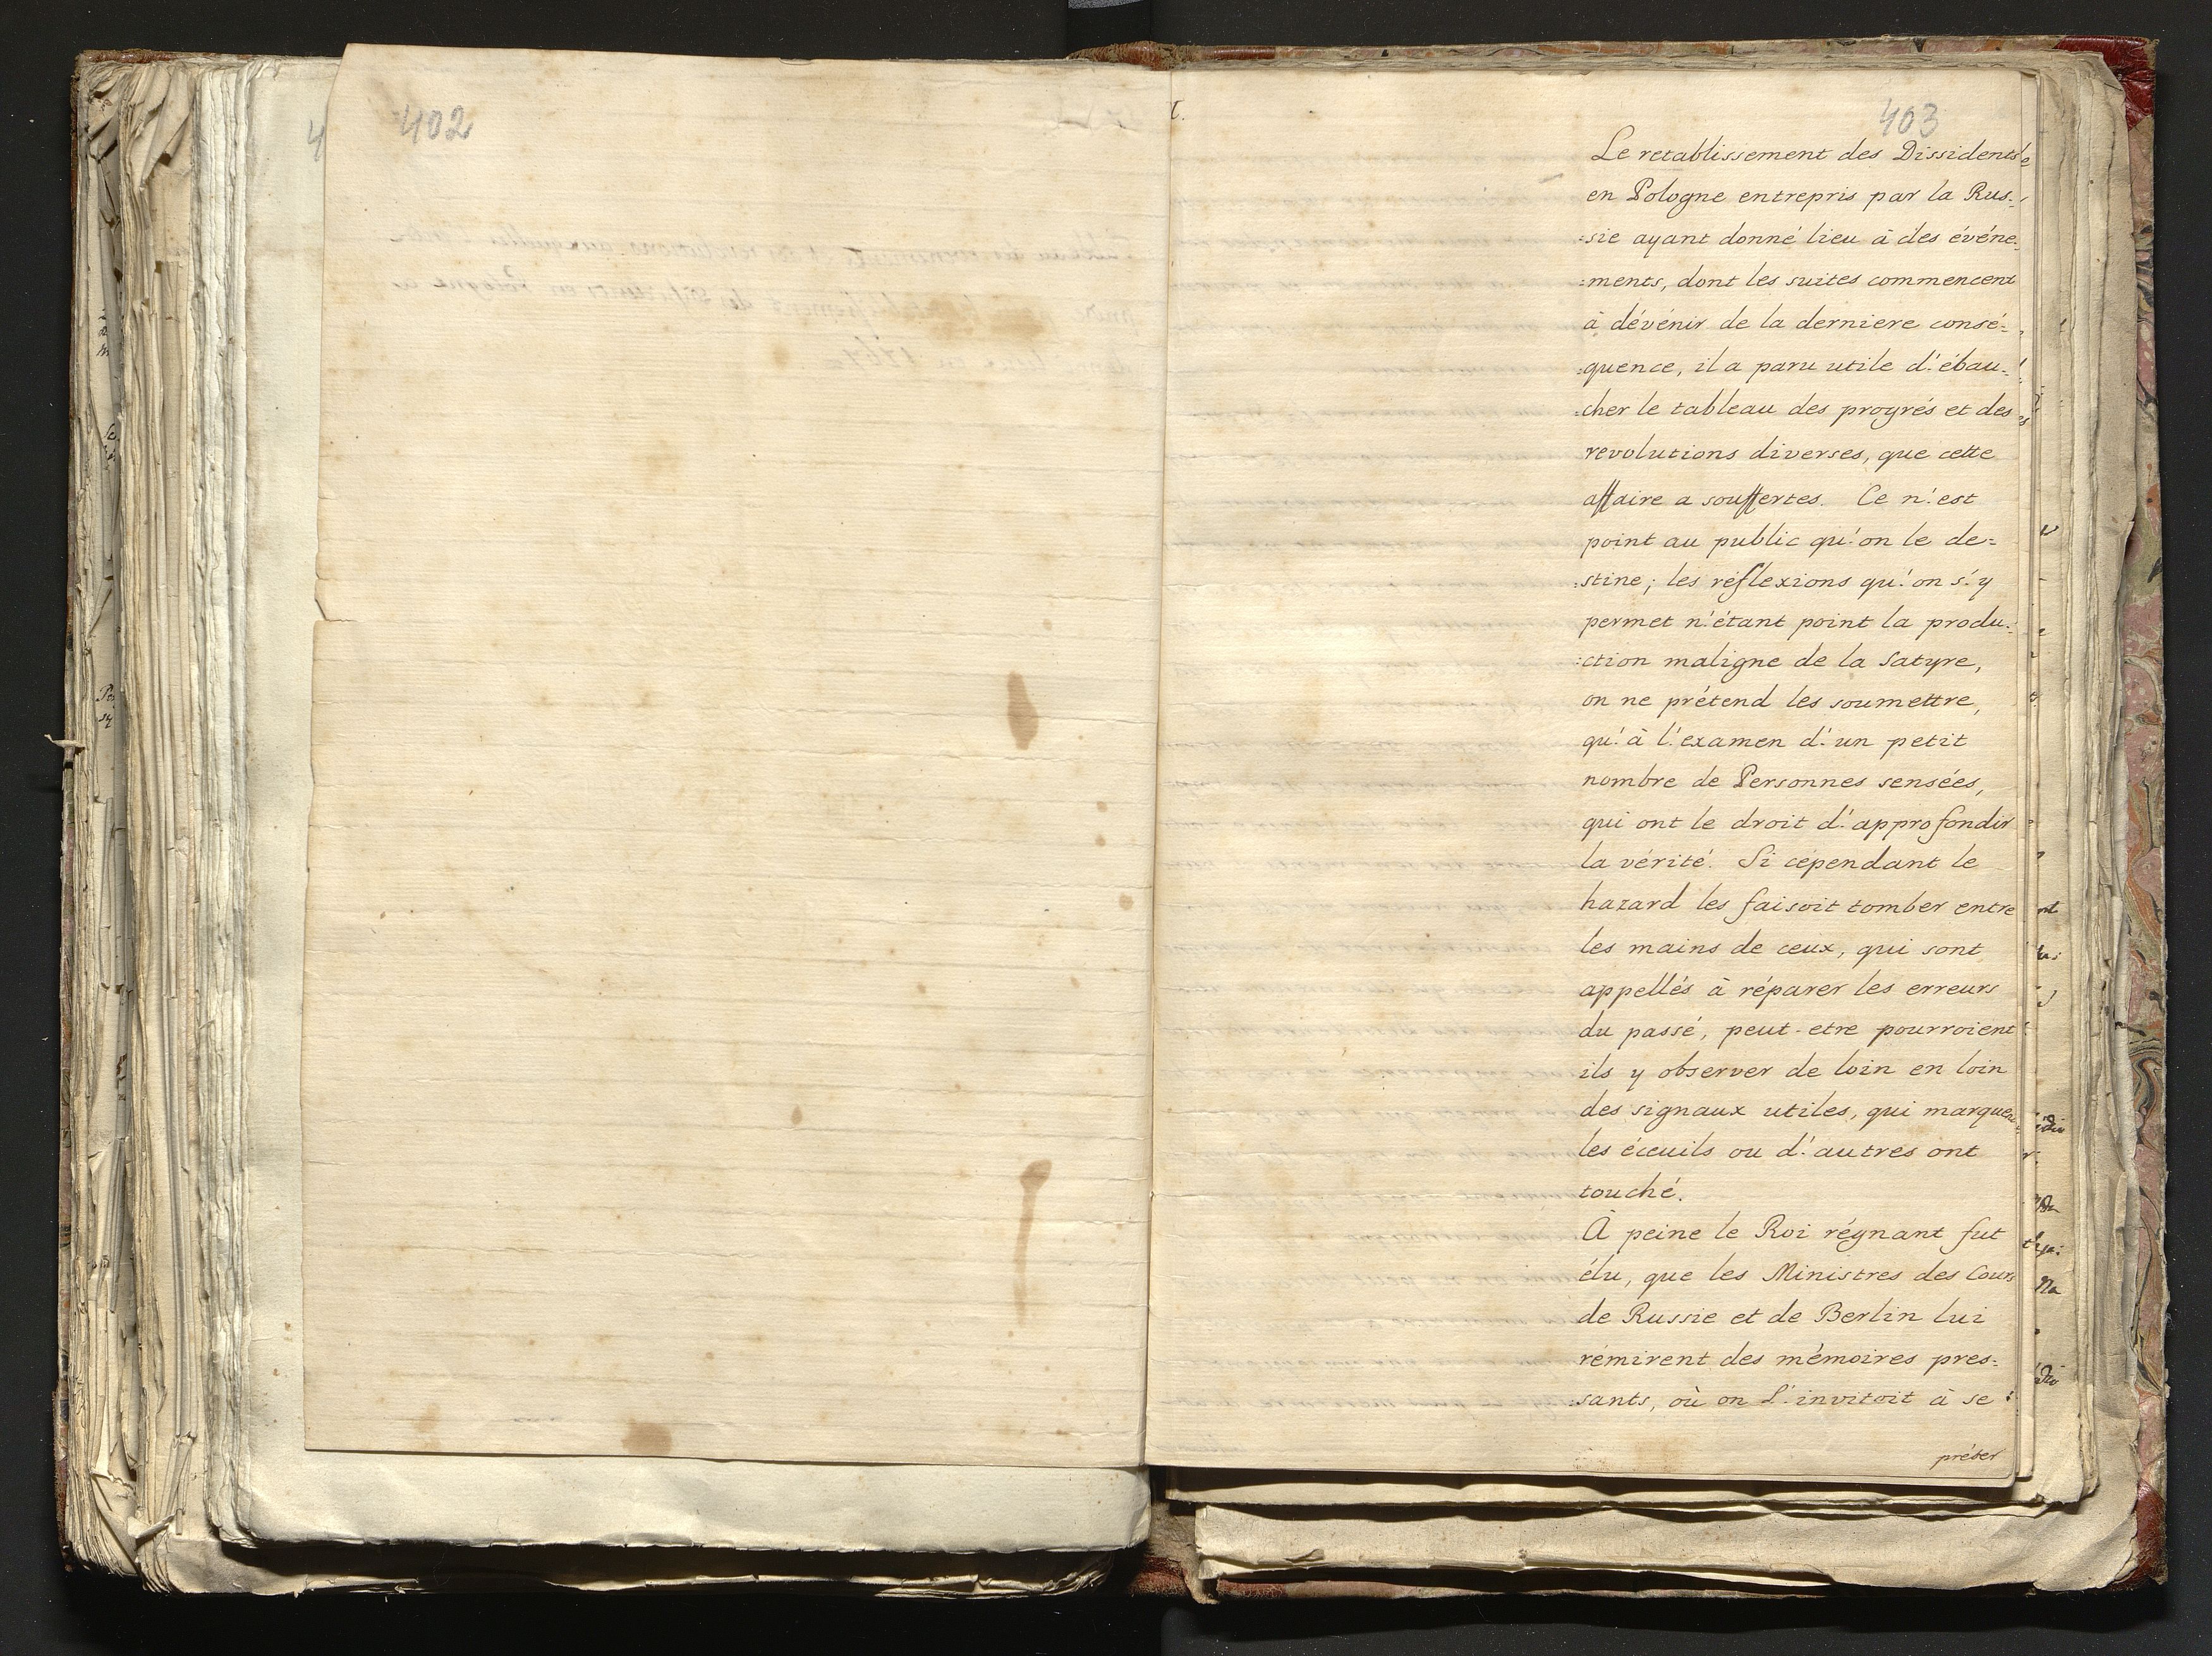 402
403
Le retablissement des Dissidents
en Pologne entrepris par la Rus=
=sie ayant donné lieu à des événe=
=ments, dont les suites commencent
à dévénir de la derniere consé=
=quence, il a paru utile d'ébau=
=cher le tableau des progrés et des
revolutions diverses, que cette
affaire a souffertes. Ce n'est
point au public qu'on le de=
=stine; les réflexions qu'on s'y
permet n'étant point la produ=
=ction maligne de la Satyre,
on ne prétend les soumettre,
qu'à l'examen d'un petit
nombre de Personnes sensées,
qui ont le droit d'approfondir
la vérité. Si cépendant le
hazard les faisoit tomber entre
les mains de ceux, qui sont
appellés à réparer les erreurs
du passé, peut-etre pourroient
ils y observer de loin en loin
des signaux utiles, qui marquent
les éceuils ou d'autres ont
touché.
À peine le Roi régnant fut
élu, que les Ministres des Cours
de Russie et de Berlin lui
rémirent des mémoires pres=
=sants, où on L'invitoit à se
préter